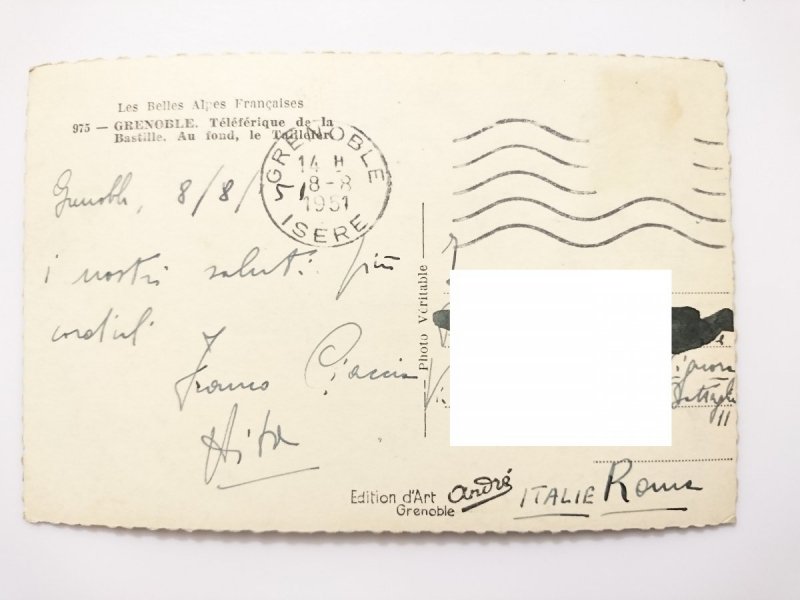 Les Belles Alpes Françaises
975 — GRENOBLE. Téléférique de la
Bastille. Au fond, le Taillefer
GRENOBLE
14 H
8-8
1951
ISERE
Grenoble, 8/8/51
i nostri saluti più
cordiali
Franco
Photo Véritable
Edition d'Art André
Grenoble
ITALIE Roma
11